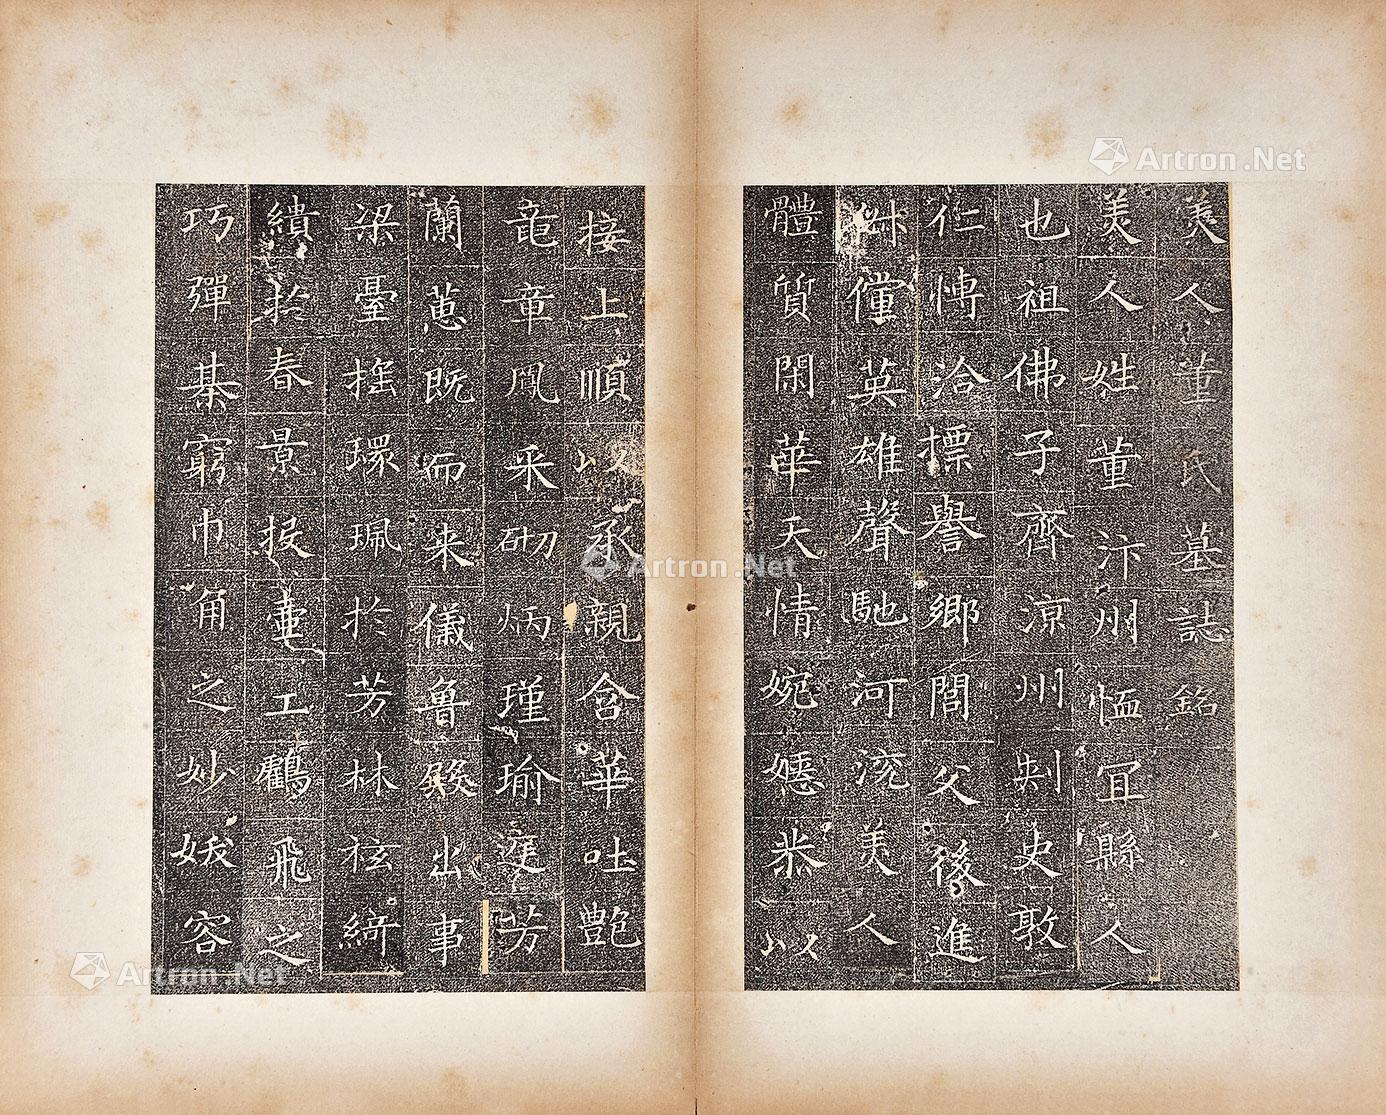 美人董氏墓誌銘
美人姓董汴州恤冝縣人
也祖佛子齊涼州刾史敦
仁愽洽摽譽鄉閭父後進
俶儻英雄聲馳河淴美人
體質閑華天情婉嫕恭以
接上順以承親含華吐艶
竜章鳳采砌炳瑾瑜庭芳
蘭蕙既而来儀魯殿出事
梁臺搖環珮於芳林袨綺
繢於春景投壷工鶴飛之
巧彈棊窮巾角之妙妖容
Artron.Net
Artron.Net
Artron.Net